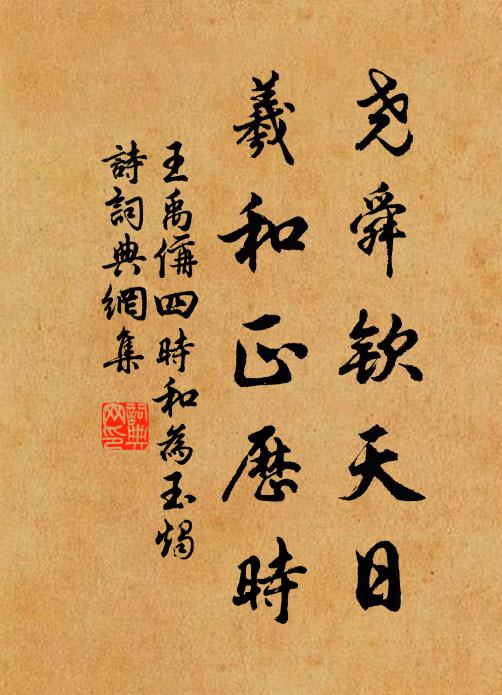 尧舜欽天日
羲和正歷時
王禹偁四時和為玉燭
詩詞典網集
詞典
网印